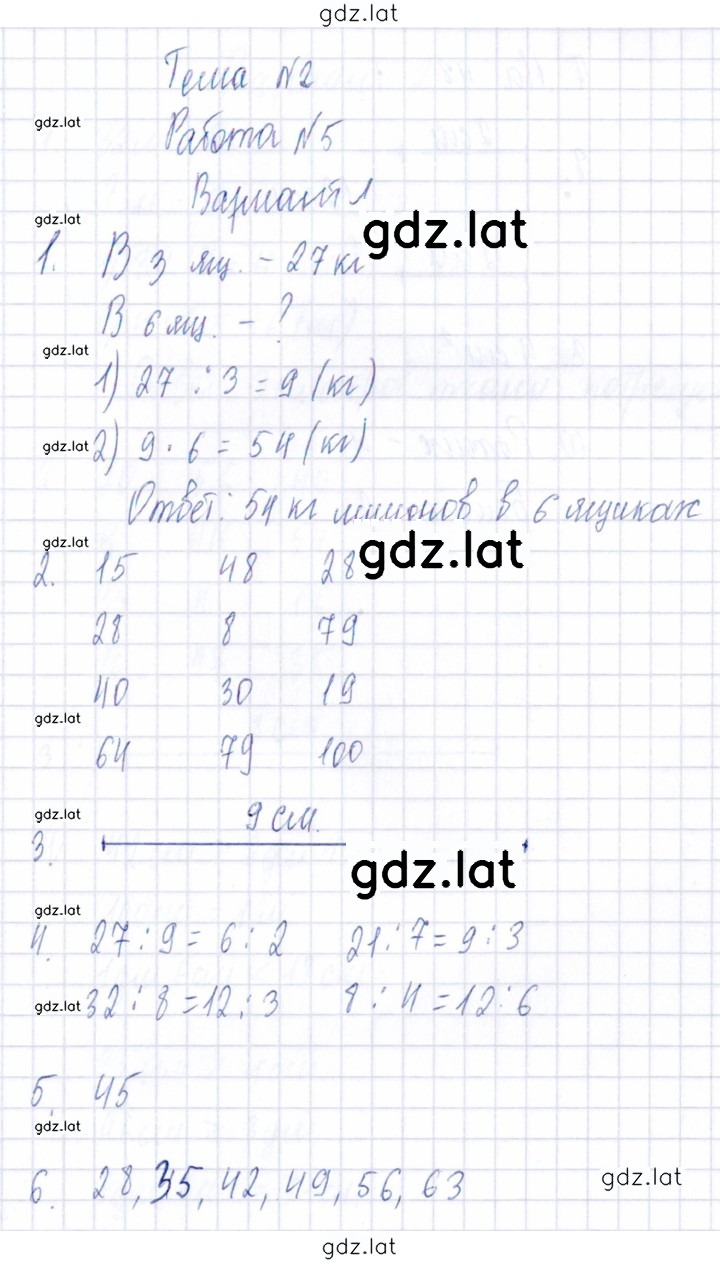 gdz.lat
Тема №2
gdz.lat
Работа №5
Вариант 1
gdz.lat
gdz.lat
1. В 3 ящ. - 27 кг
В 6 ящ. - ?
gdz.lat
1) 27 : 3 = 9 (кг)
gdz.lat
2) 9 · 6 = 54 (кг)
Ответ: 54 кг лимонов в 6 ящиках
gdz.lat
gdz.lat
2. 15 48 28
28 8 79
40 30 19
gdz.lat
64 79 100
gdz.lat
9 см.
3.
gdz.lat
gdz.lat
4. 27 : 9 = 6 : 2 21 : 7 = 9 : 3
gdz.lat
32 : 8 = 12 : 3 8 : 4 = 12 : 6
5. 45
gdz.lat
6. 28, 35, 42, 49, 56, 63
gdz.lat
gdz.lat